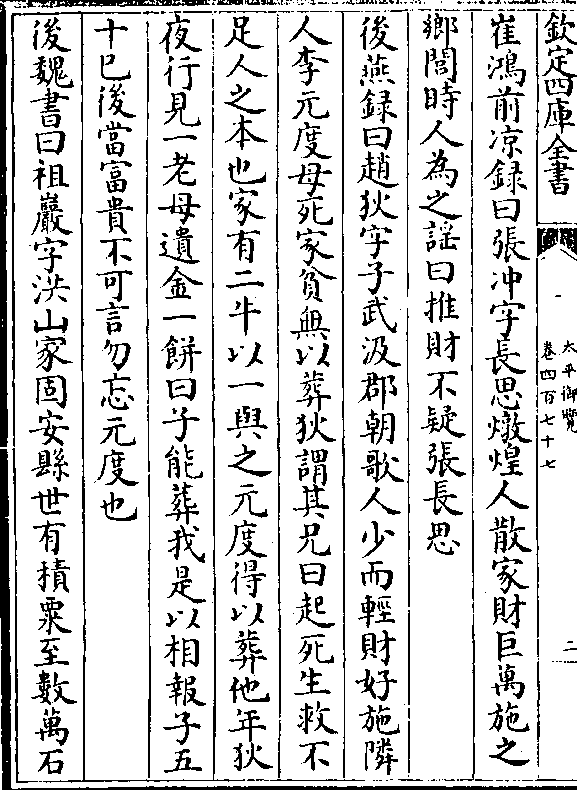 欽定四庫全書
太平御覽
卷四百七十七
二
崔鴻前凉録曰張冲字長思燉煌人散家財巨萬施之
鄉閭時人為之謡曰推財不疑張長思
後燕録曰趙狄字子武汲郡朝歌人少而輕財好施隣
人李元度母死家貧無以葬狄謂其兄曰起死生救不
足人之本也家有二牛以一與之元度得以葬他年狄
夜行見一老母遺金一餅曰子能葬我是以相報子五
十已後當富貴不可言勿忘元度也
後魏書曰祖巖字洪山家固安縣世有積粟至數萬石